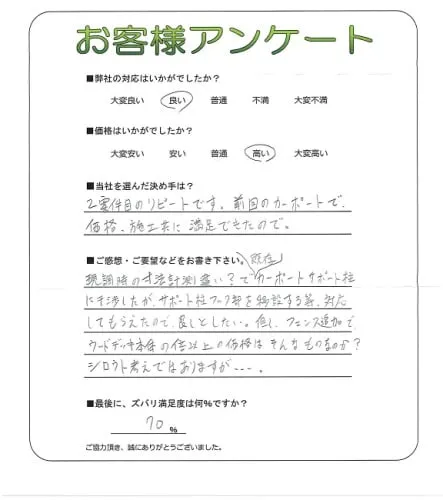 お客様アンケート
■弊社の対応はいかがでしたか?
大変良い 良い 普通 不満 大変不満
■価格はいかがでしたか?
大変安い 安い 普通 高い 大変高い
■当社を選んだ決め手は?
2案件目のリピートです。前回のカーポートで、
価格、施工共に満足できたので。
■ご感想・ご要望などをお書き下さい。
既存
現調時の寸法計測違い?でカーポートサポート柱
に干渉したが、サポート柱フック部を移設する等、対応
してもらえたので、良しとしたい。但し、フェンス追加で
ウードデッキ本体の倍以上の価格はそんなものなのか?
シロウト考えではありますが---。
■最後に、ズバリ満足度は何%ですか?
70 %
ご協力頂き、誠にありがとうございました。